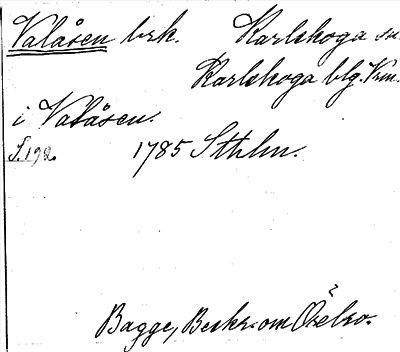 Valåsen brk. Karlskoga sn.
Karlskoga blg. Vrm.
i Valåsen.
S. 192. 1785 Sthlm.
Bagge, Beskr. om Örebro.